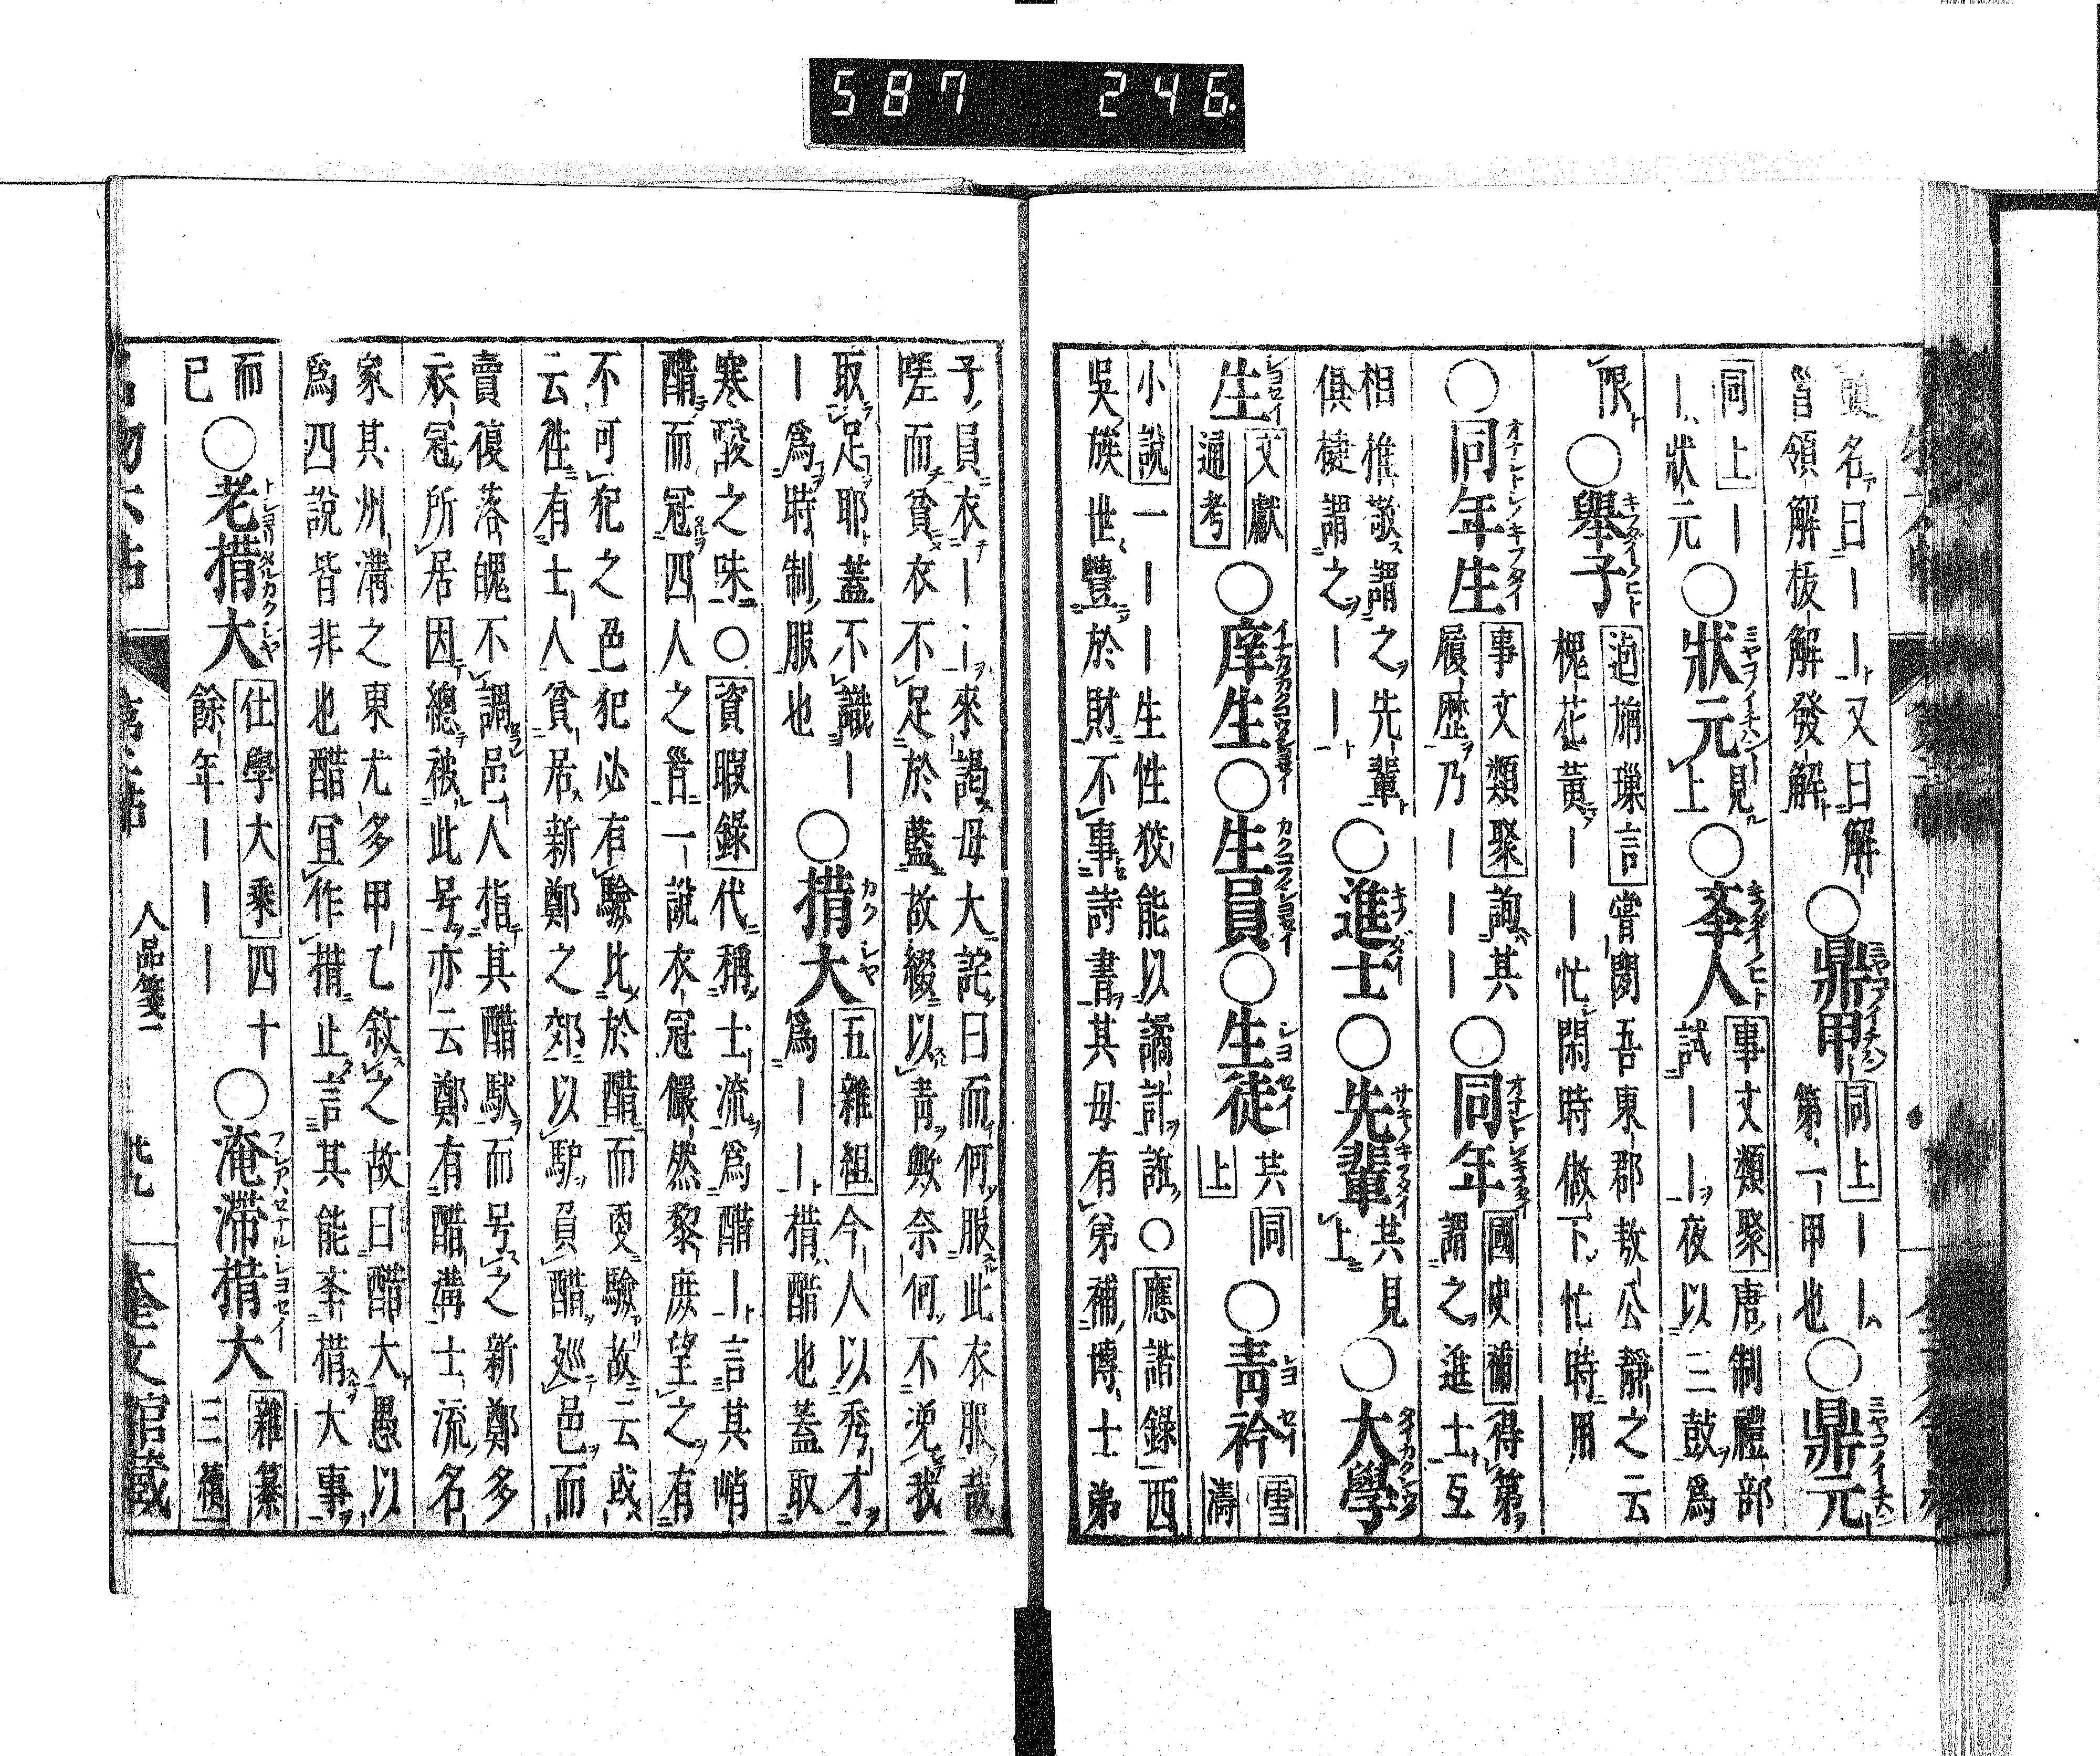 587 246.
頭名曰｜｜又曰解
首領解拔解發解
○鼎甲
同上｜｜
第一甲也
○鼎元
同上｜
｜狀元
○狀元
見上
○夅人
事文類聚唐制禮部
試｜｜夜以三鼓爲
限
○舉子
遊㫋璅言嘗聞吾東郡敖公靜之云
槐花黃｜｜忙閑時做下忙時用
○同年生
事文類聚詢其
履歷乃｜｜｜
○同年
國史補得第
謂之進士互
相推敬謂之先輩
俱捷謂之｜｜
○進士
○先輩
共見上
○大學
生
文獻通考
○庠生
○生員
○生徒
共同上
○青衿
雪濤
小說一｜｜生性狡能以譎計誑○應諧錄西
吳族世豐於財不事詩書其母有弟補博士弟
子員衣｜｜來謁母大詫曰而何服此衣服哉
嗟而貧衣不足於藍故綴以青歟奈何不浼我
取足耶蓋不識｜
｜爲時制服也
○措大
五雜組今人以秀才
爲｜｜措醋也蓋取
寒酸之味○資暇錄代稱士流爲醋｜言其峭
醋而冠四人之首一說衣冠儼然黎庶望之有
不可犯之色犯必有驗比於醋而更驗故云或
云往有士人貧居新鄭之郊以馿負醋廵邑而
賣復落魄不調邑人指其醋馱而号之新鄭多
衣冠所居因總被此号亦云鄭有醋溝士流名
家其州溝之東尤多甲乙敘之故曰醋大愚以
爲四說皆非也醋冝作措止言其能夅措大事
而已
○老措大
仕學大乘四十
餘年｜｜｜
○淹滯措大
雜纂三續
人品箋一
奎文館藏